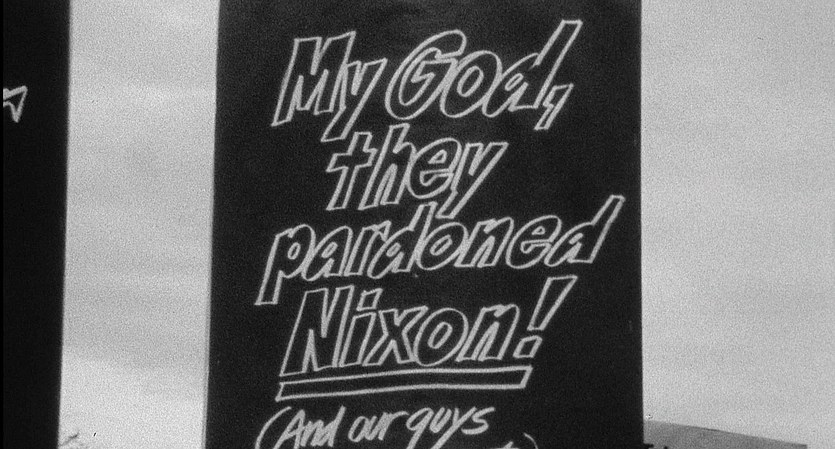 My God,
they
pardoned
Nixon!
(And our guys